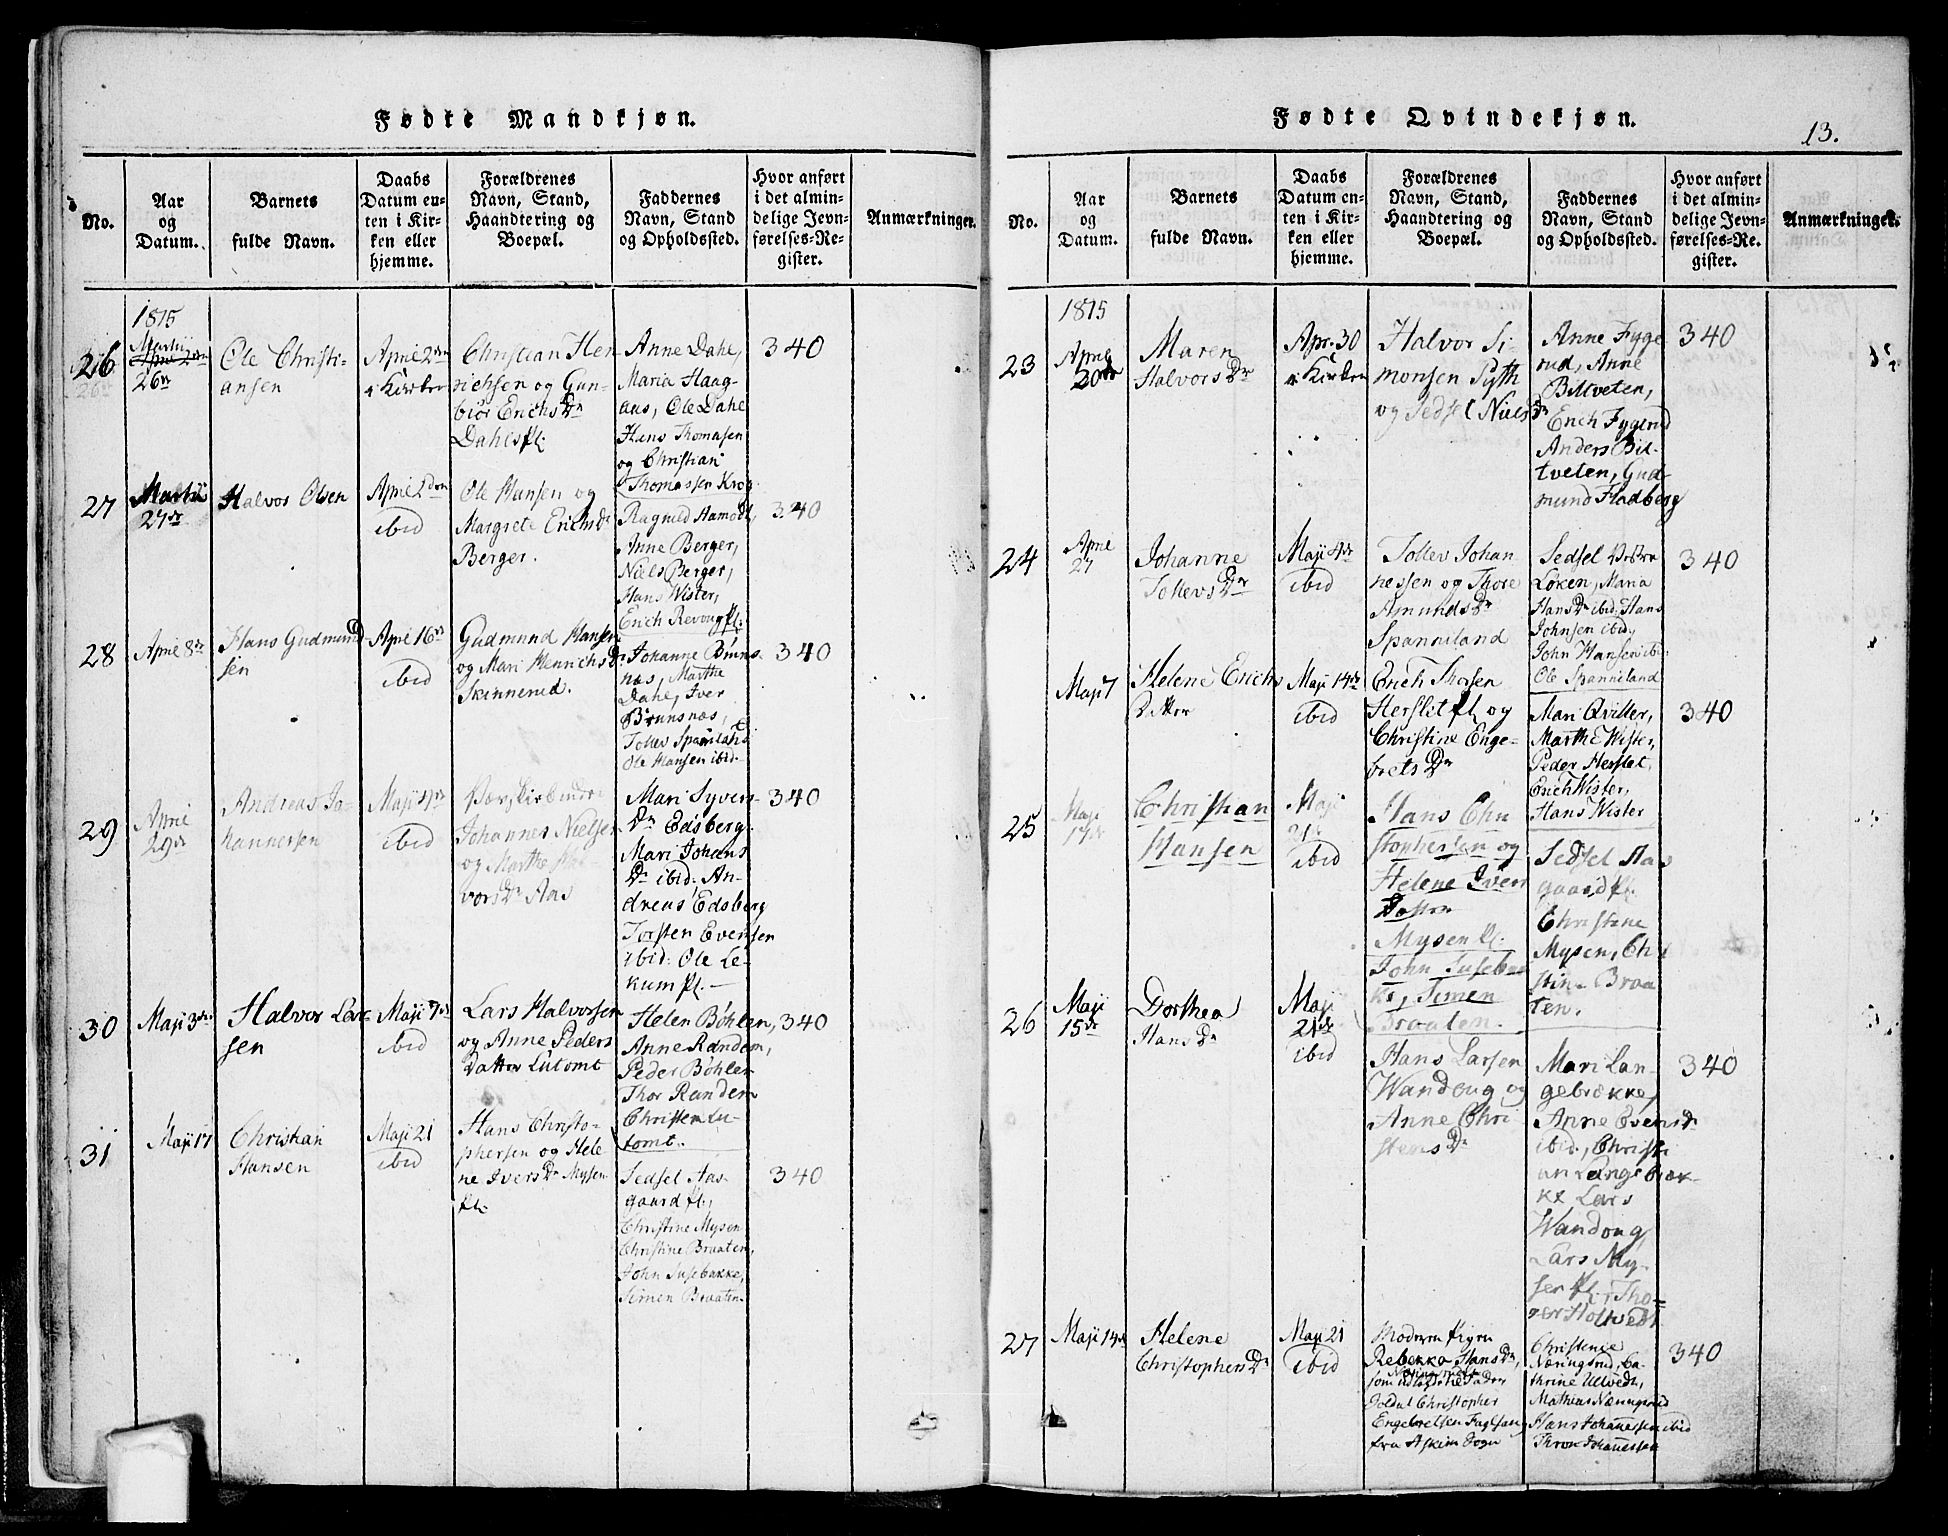 Fødte Mandkjøn.
No.
Aar
og
Datum.
Barnets
fulde Navn.
Daabs
Datum en-
ten i Kir-
ken eller
hjemme.
Forældrenes
Navn, Stand,
Haandtering og
Boepæl.
Faddernes
Navn, Stand
og Opholdssted.
Hvor anført
i det almin-
delige Jevn-
førelses-Re-
gister.
Anmærkninger.
1815
26
Martii
26de
Ole Christi-
ansen
April 2den
i Kirken
Christian Hen
richsen og Gun-
biør Erichs Dr
Dahls pl.
Anne Dahl,
Maria Haag-
aas, Ole Dahl
Hans Thomasen
og Christian
Thomassen Krog
340
27
Martii
27de
Halvor Olsen
April 2den
ibid
Ole Hansen og
Margrete Erichs Dr
Berger.
Ragnild Hamodt,
Anne Berger,
Niels Berger,
Hans Wister,
Erich Revoug pl.
340
28
April 8de
Hans Gudmund
sen
April 16de
ibid
Gudmund Hansen
og Mari Henrichs Dr
Skinnerud.
Johanne Bruns-
næs, Marthe
Dahl, Iver
Brunsnæs,
Tollev Spanniland
Ole Hansen ibid.
340
29
April
29de
Andreas Jo-
hannessen
Maji 4de
ibid
Johannes Nielsen
og Marthe Hal-
vors Dr Aas
Mari Syvers
Dr Edsberg.
Mari Johans
Dr ibid. An-
dreas Edsberg
Torsten Evensen
ibid: Ole Le-
kum pl.
340
30
Maji 3de
Halvor Lar-
sen
Maji 7de
ibid
Lars Halvorsen
og Anne Peders
Datter Lutomt
Helen Böhlen,
Anne Randem,
Peder Böhler
Thor Randem
Christen Lu-
tomt.
340
31
Maji 17
Christian
Hansen
Maji 21
ibid
Hans Christo-
phersen og Hele
ne Ivers Dr Mysen
pl.
Sedsel Aas-
gaard pl.,
Christine Mysen
Christine Braaten,
John Susebakke,
Simen Braaten.
340
Fødte Qvindekjøn.
13.
No.
Aar
og
Datum.
Barnets
fulde Navn.
Daabs
Datum en-
ten i Kir-
ken eller
hjemme.
Forældrenes
Navn, Stand,
Haandtering og
Boepæl.
Faddernes
Navn, Stand
og Opholdssted.
Hvor anført
i det almin-
delige Jevn-
førelses-Re-
gister.
Anmærkninger.
1815
23
April
20de
Maren
Halvors Dr
Apr. 30
i Kirken
Halvor Si-
monsen Pyth
og Sedsel Niels Dr
Anne Fyge
rud, Anne
Biltveten,
Erich Fygerud
Anders Bil-
tveten, Gud-
mund Hadberg
340
24
April
27
Johanne
Tollevs Dr
Maji 4de
ibid
Tollev Johan
nessen og Thore
Amunds Dr
Spanniland
Sedsel
Löken, Maria
Hans Dr ibid: Hans
Johnsen ibid.,
John Hansen ibi-
Ole Spanniland
340
Maji 7
Helene Erichs
Datter
Maji 14de
ibid
Erich Thosen
Herslet pl og
Christine Enge-
brets Dr
Mari Qviller,
Marthe Wister,
Peder Herslet,
Erich Wister,
Hans Wister
340
25
Maji
17de
Christian
Hansen
Maji
21de
ibid
Hans Chri
stophersen og
Helene Ivers
Datter
Mysen pl.
John Susebak
ke, Simen
Braaten.
Sedsel Aas
gaard pl.
Christine
Mysen, Chri
stine Braa
ten.
26
Maji
15de
Dorthea
Hans Dr
Maji
21de
ibid
Hans Larsen
Wandoug og
Anne Chri
stens Dr
Mari Lan-
gebrække,
Anne Evens Dr
ibid., Christi
an Langebræk-
ke Lars
Wandoug,
Lars My-
sen pl., Tho-
rer Holtvedt
340
27
Maji 14de
Helene
Christophers Dr
Maji 21
ibid
Moderen Pigen
Rebekka Hans Dr,
Soldat Christopher
Engebretsen Fuglsang
fra Askim Sogn
Christense
Næringsrud, Ca-
thrine Ultvedt,
Mathias Næringsrud
Hans Johannessen ibid
Thron Johannessen
340